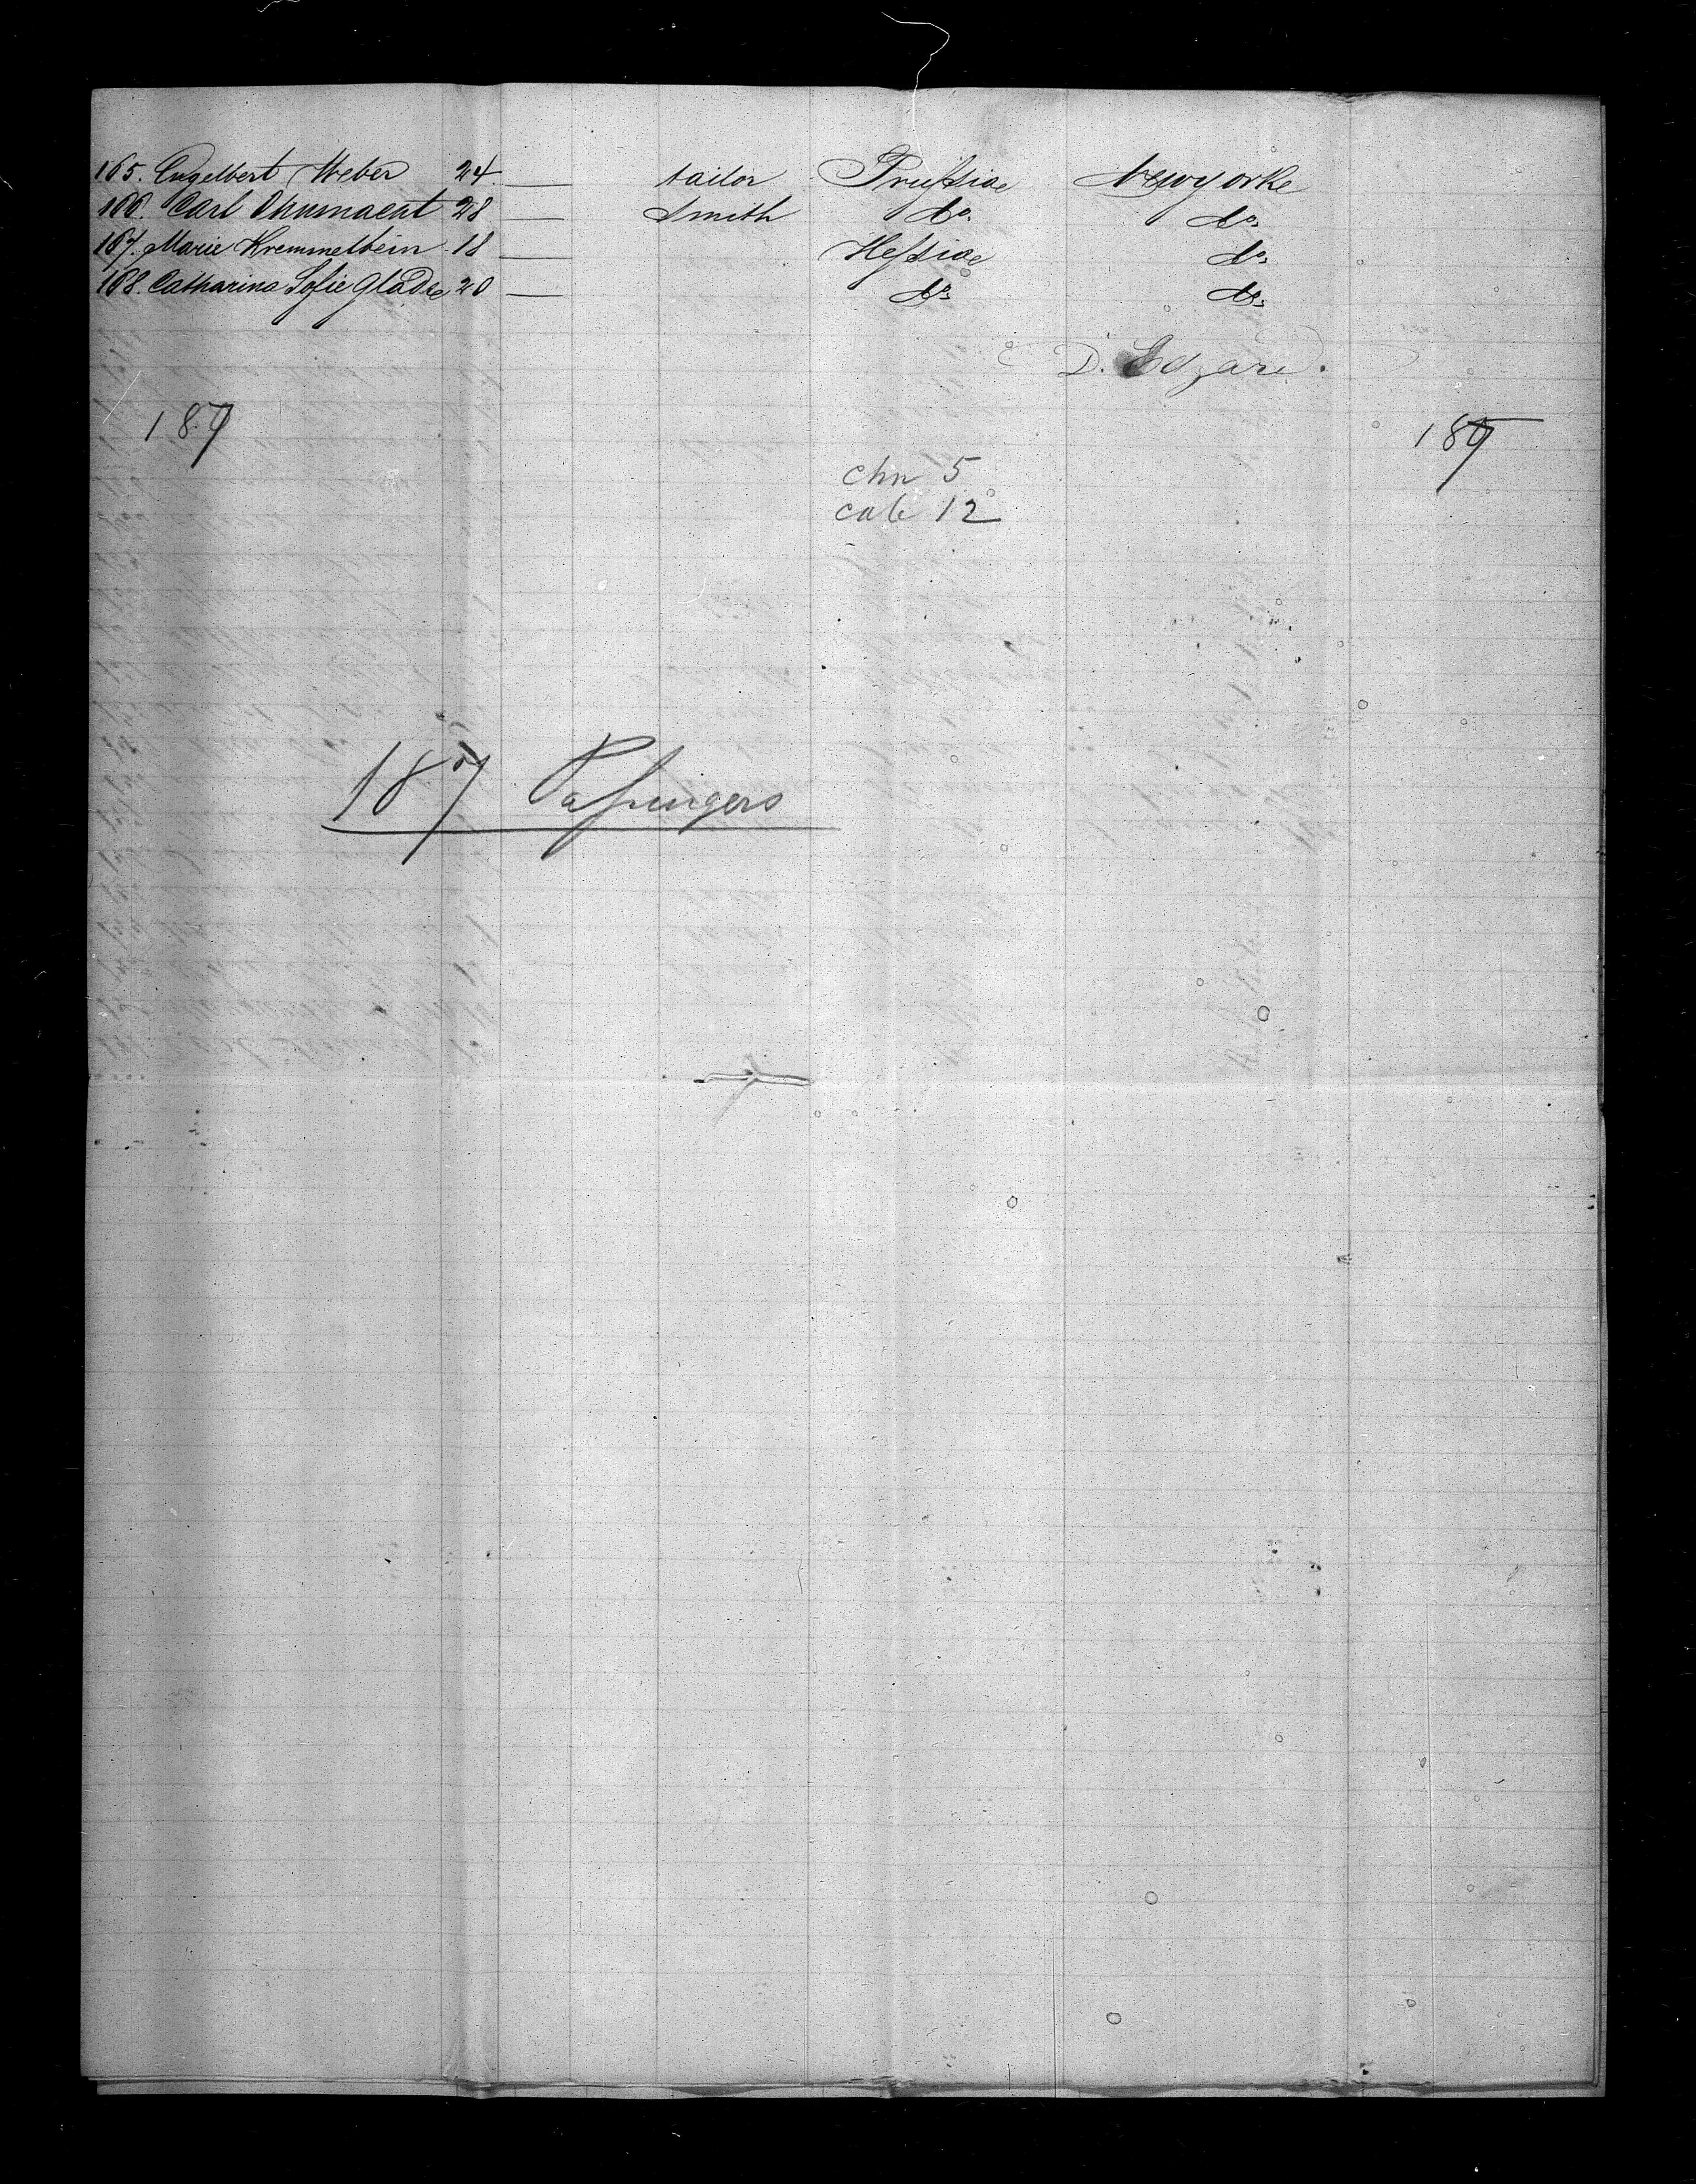 165. Engelbert Weber 24 — tailor Prussia Newyorke
166. Carl Ohnmacht 28 — Smith do.
167. Marie Kremmelbein 18 — Hessia do.
168. Catharina Sofie 20 — do. do.
D.
187
187
chn 5
cab 12
187 Passengers